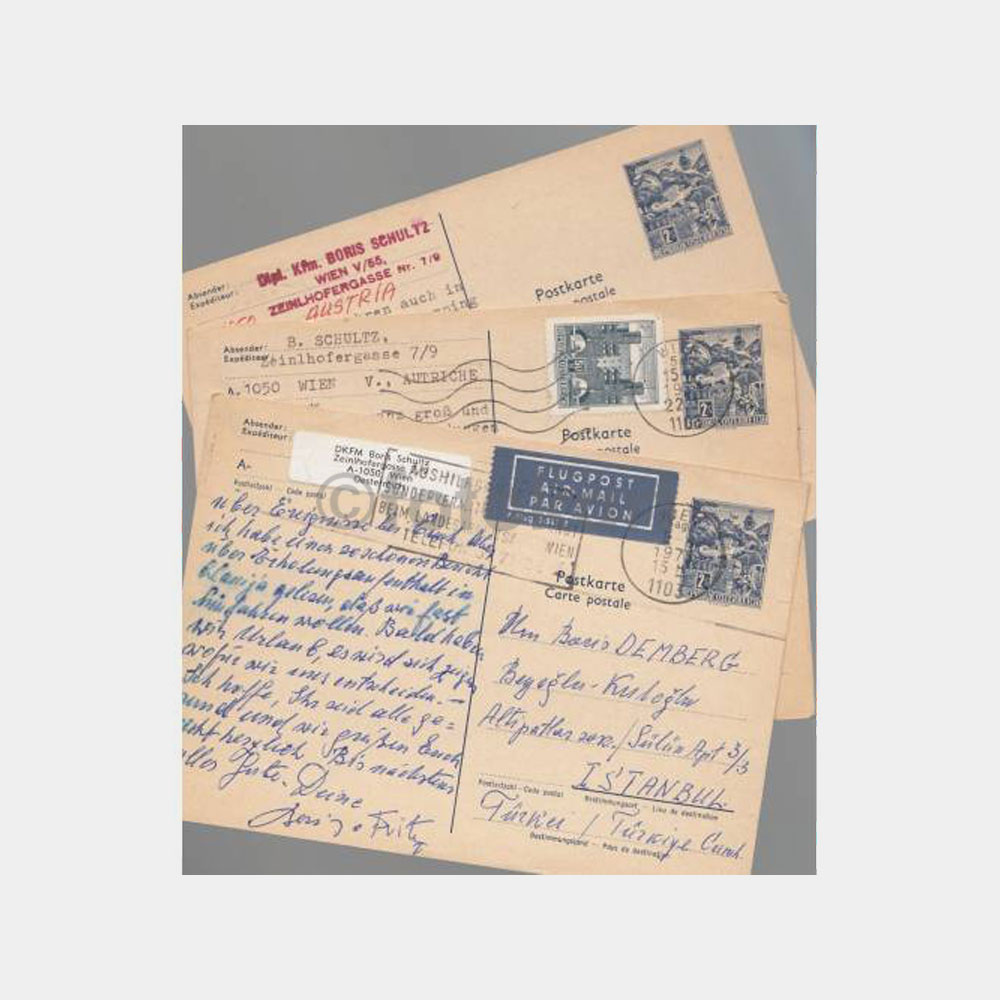 Dipl. Kfm. BORIS SCHULTZ
WIEN V/55,
ZEINLHOFERGASSE Nr. 7/9
AUSTRIA
Absender:
Expéditeur:
auch in
Postkarte
postale
2
Absender:
Expéditeur:
B. SCHULTZ,
Zeinlhofergasse 7/9
A-1050 WIEN V., AUTRICHE
groß und
Postkarte
postale
2
Absender:
Expéditeur:
A-
Postleitzahl - Code postal
DKFM Boris Schultz
Zeinlhofergasse
A-1050 Wien
Oesterreich
FLUGPOST
AIR MAIL
PAR AVION
WIEN
1103
2
Postkarte
Carte postale
über Ereignisse bei Euch. Wir
ich habe einen so schönen Bericht
über Erholungsaufenthalt in
gelesen, daß wir fast
hinfahren wollen. Bald haben
wir Urlaub, es wird sich zeigen
wofür wir uns entscheiden. —
Ich hoffe, Ihr seid alle ge=
sund und wir grüßen Euch
recht herzlich. Bis nächstens
alles Gute. Deine
Boris + Fritzy
Boris DEMBERG
Beyoğlu - Kuloğlu
Altıpatlar sok./Sülün Apt 3/3
Postleitzahl - Code postal
ISTANBUL
Bestimmungsort - Lieu de destination
Türkei / Türkiye Cumh.
Bestimmungsland - Pays de destination